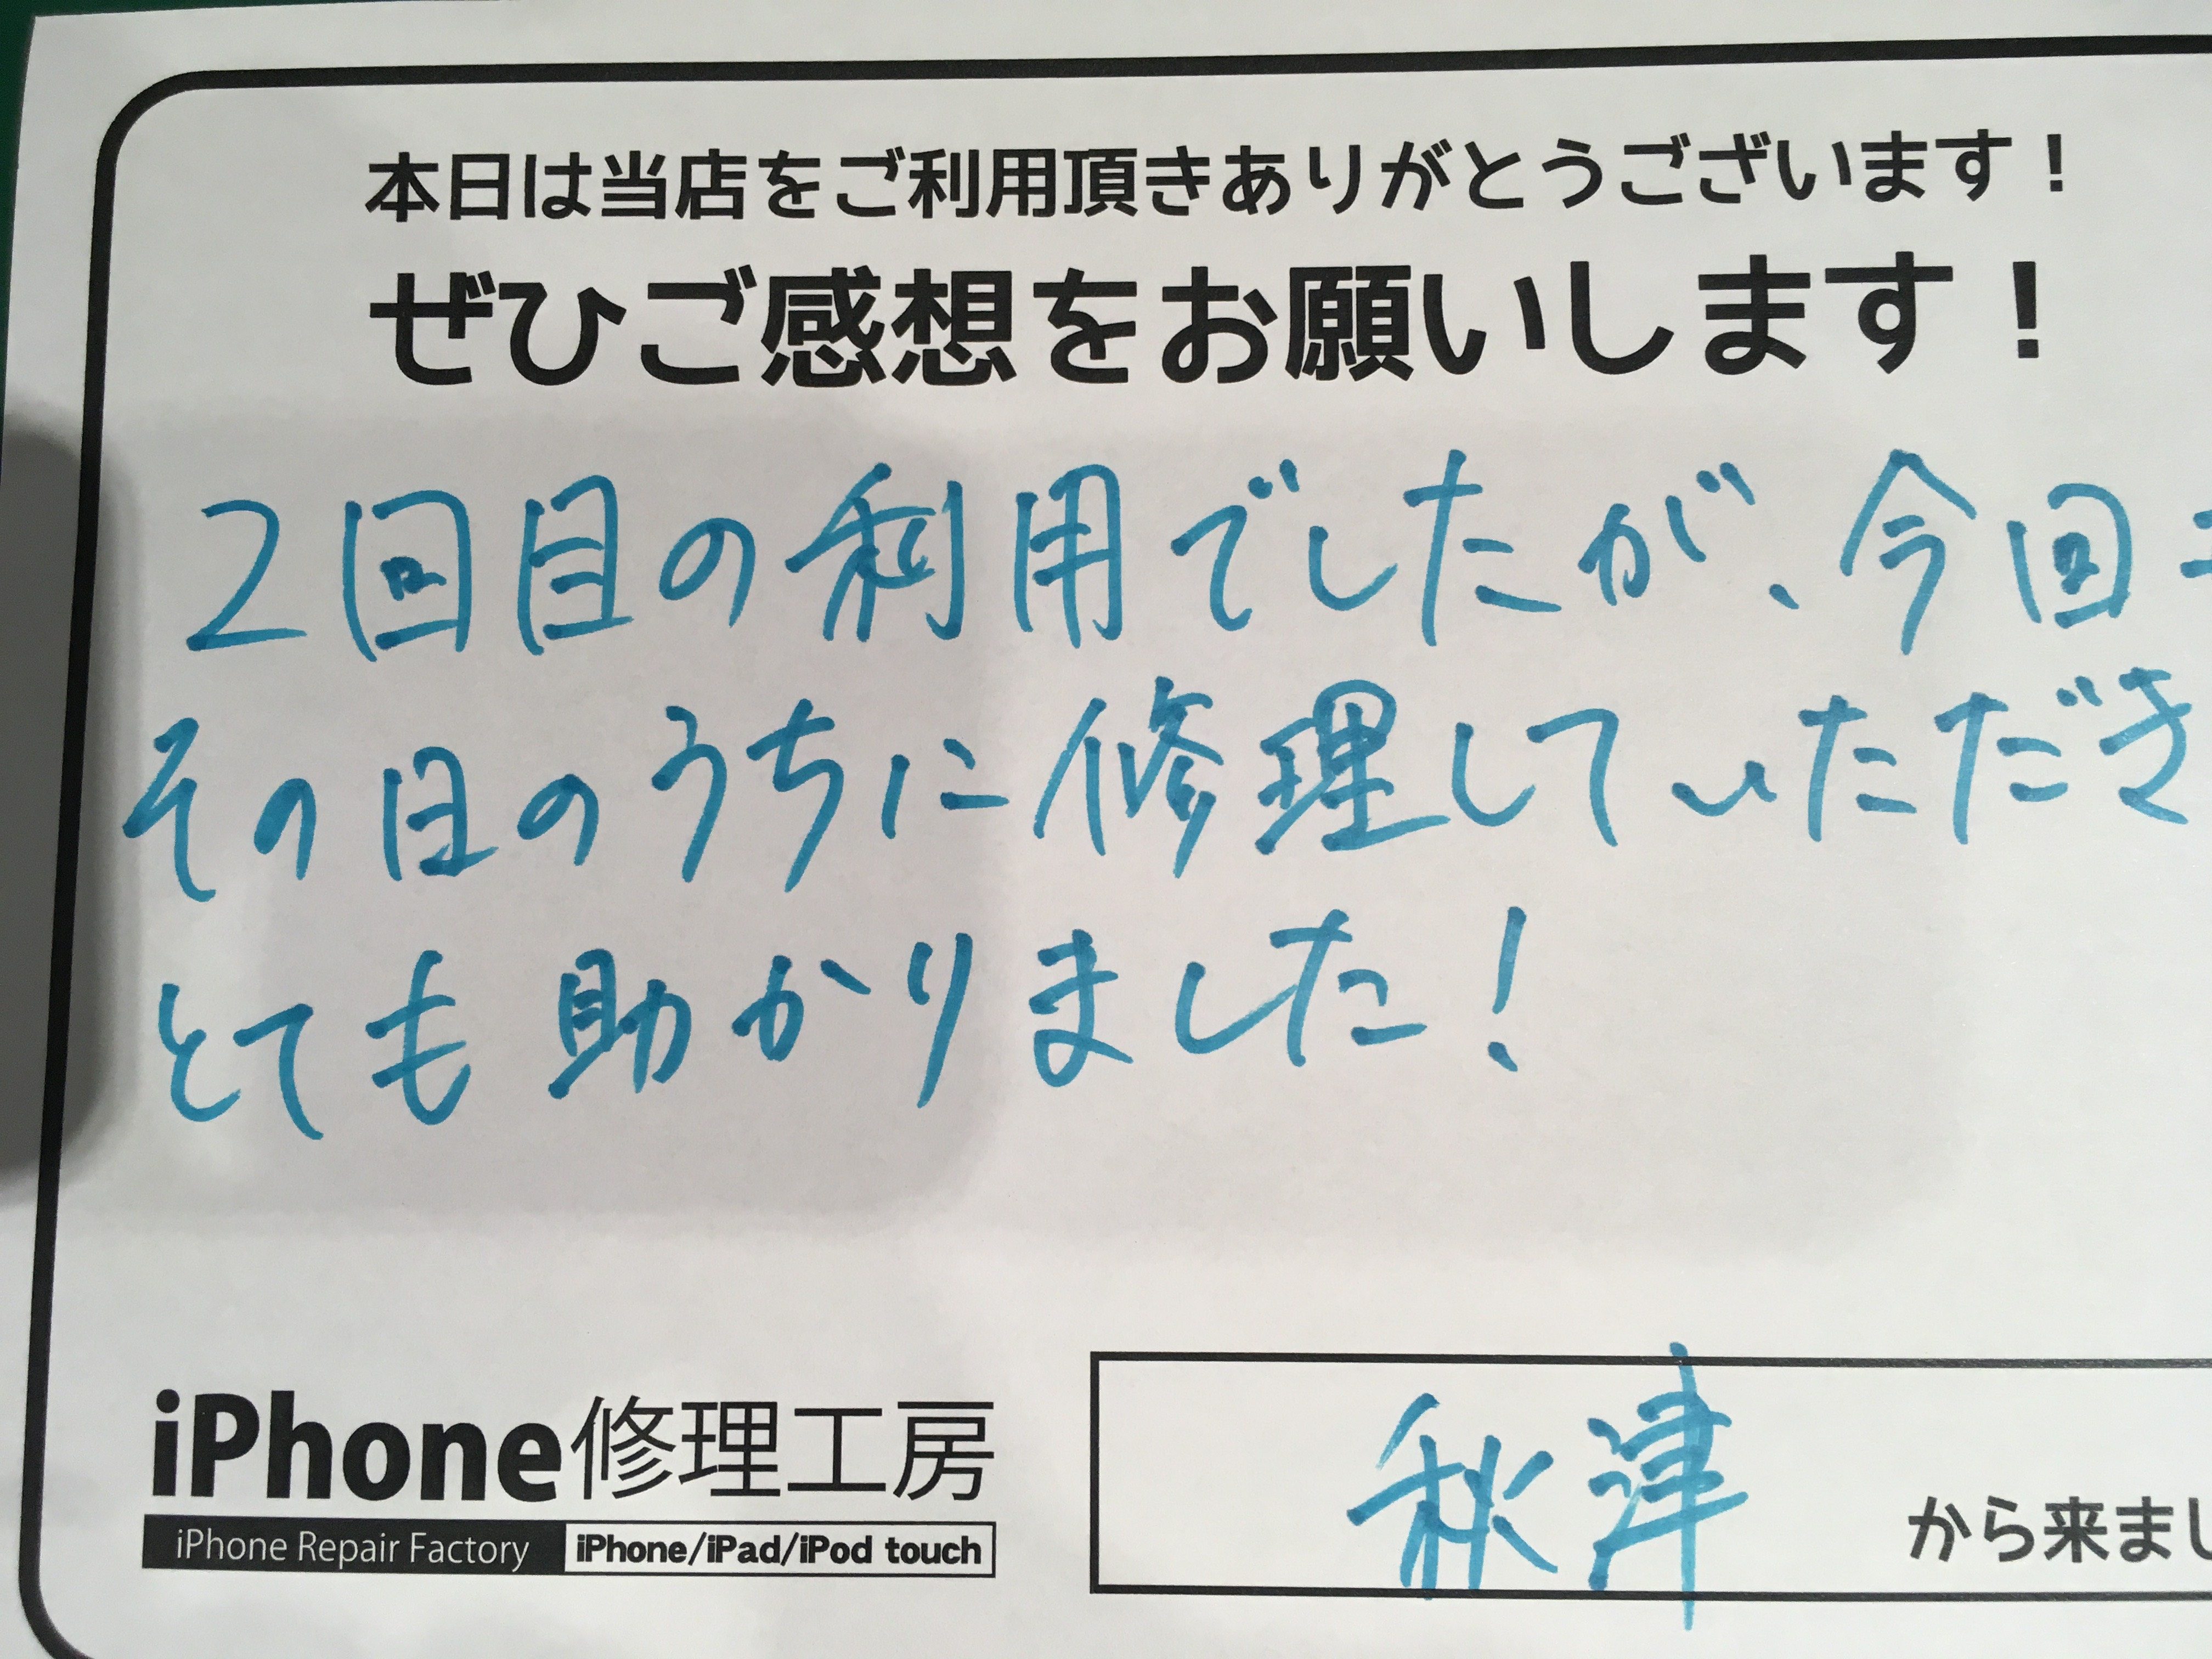 本日は当店をご利用頂きありがとうございます！
ぜひご感想をお願いします！
2回目の利用でしたが、今回
その日のうちに修理していただき
とても助かりました！
iPhone修理工房
iPhone Repair Factory iPhone/iPad/iPod touch
秋津 から来まし